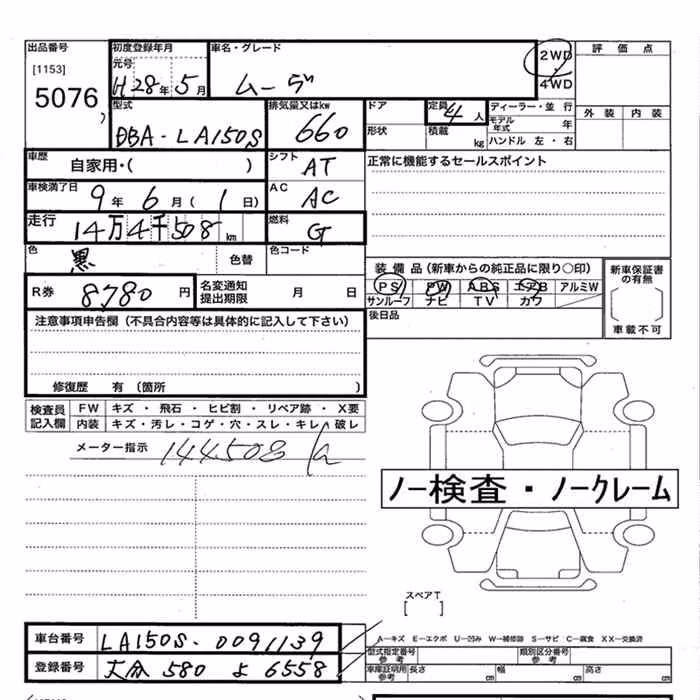 出品番号 初度登録年月 車名・グレード 2WD 評価点
[1153] 元号
5076 H28年5月 ムーヴ 4WD
型式 排気量又はkw ドア 定員 4人 ディーラー・並行 外装 内装
DBA-LA150S 660 形状 積載 kg モデル年式 年
ハンドル 左・右
車歴 自家用・( ) シフト AT 正常に機能するセールスポイント
車検満了日 9年6月(1日) AC AC
走行 14万4千508km 燃料 G
色 黒 色替 色コード 装備品(新車からの純正品に限り○印) 新車保証書の有無
R券 8780円 名変通知提出期限 月 日 PS PW ABS エアB アルミW
サンルーフ ナビ TV カワ
注意事項申告欄(不具合内容等は具体的に記入して下さい) 後日品 車載不可
修復歴 有(箇所 )
検査員記入欄 FW キズ・飛石・ヒビ割・リペア跡・X要
内装 キズ・汚レ・コゲ・穴・スレ・キレ・破レ
メーター指示 144508
ノー検査・ノークレーム
スペアT
[ ]
車台番号 LA150S-0091139 A―キズ E―エクボ U―凹み W―補修跡 S―サビ C―腐食 XX―交換済
型式指定番号 参考 類別区分番号 参考
登録番号 大分 580 よ 6558 車庫証明用 参考 長さ cm 幅 cm 高さ cm